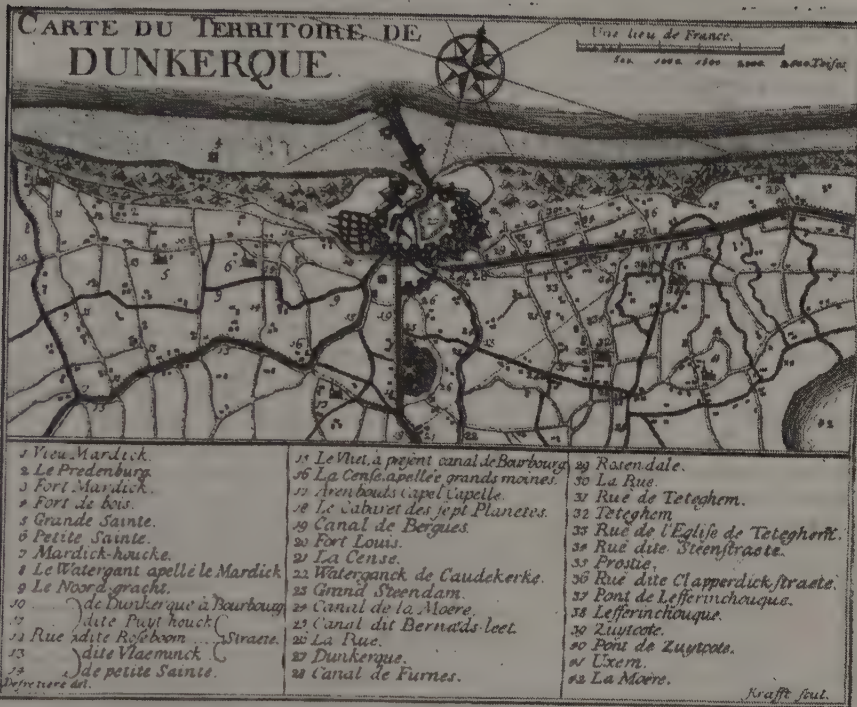 CARTE DU TERRITOIRE DE
DUNKERQUE.
Une lieu de France.
500 1000 1500 2000 2500 Toises
1 Vieu Mardick.
2 Le Predenburg
3 Fort Mardick.
4 Fort de bois.
5 Grande Sainte.
6 Petite Sainte.
7 Mardick-houcke.
8 Le Watergant apellé le Mardick
9 Le Noord-gracht.
10 de Dunkerque à Bourbourg
11 dite Puyt houck
12 Rue dite Roseboom Straete.
13 dite Vlaeminck
14 de petite Sainte.
15 Le Vliet, à présent canal de Bourbourg
16 La Cense, apellée grands moines.
17 Arenbouds Capel Capelle.
18 Le Cabaret des sept Planetes.
19 Canal de Bergues.
20 Fort Louis.
21 La Cense.
22 Waterganck de Caudekerke.
23 Grand Steendam.
24 Canal de la Moere.
25 Canal dit Bernards-leet.
26 La Rue.
27 Dunkerque.
28 Canal de Furnes.
29 Rosendale.
30 La Rue.
31 Rue de Teteghem.
32 Teteghem
33 Rue de l'Eglise de Teteghem.
34 Rue dite Steenstraete.
35 Prostie.
36 Rue dite Clapperdick-straete.
37 Pont de Lefferinchouque.
38 Lefferinchouque.
39 Zuytcote.
40 Pont de Zuytcote.
41 Uxem.
42 La Moere.
del.
Krafft scul.